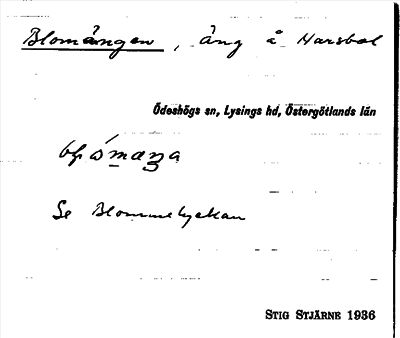 Blomängen, äng å Narsbol
Ödeshögs sn, Lysings hd, Östergötlands län
Se Blommelyckan
STIG STJÄRNE 1936